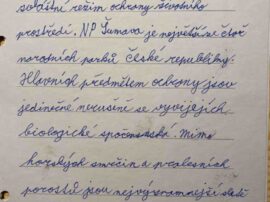 zvláštní režim ochrany životního
prostředí. NP Šumava je největší ze čtyř
národních parků České republiky.
Hlavních předmětem ochrany jsou
jedinečné nerušené se vyvíjejích
biologické společenstva. Mimo
horských smrčin a pralesních
porostů jsou nejvýznamnější slatě